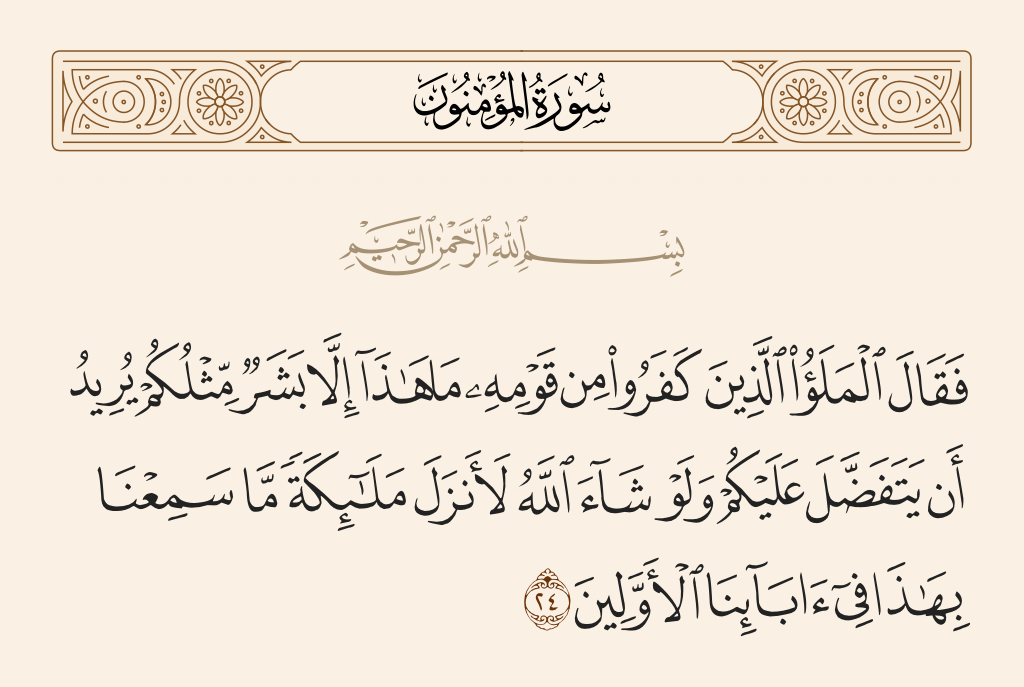 سُورَةُ المُؤْمِنُونَ
بِسْمِ ٱللَّهِ ٱلرَّحْمَٰنِ ٱلرَّحِيمِ
فَقَالَ ٱلْمَلَؤُا۟ ٱلَّذِينَ كَفَرُوا۟ مِن قَوْمِهِۦ مَا هَٰذَآ إِلَّا بَشَرٌ مِّثْلُكُمْ يُرِيدُ
أَن يَتَفَضَّلَ عَلَيْكُمْ وَلَوْ شَآءَ ٱللَّهُ لَأَنزَلَ مَلَٰٓئِكَةً مَّا سَمِعْنَا
بِهَٰذَا فِىٓ ءَابَآئِنَا ٱلْأَوَّلِينَ ٢٤